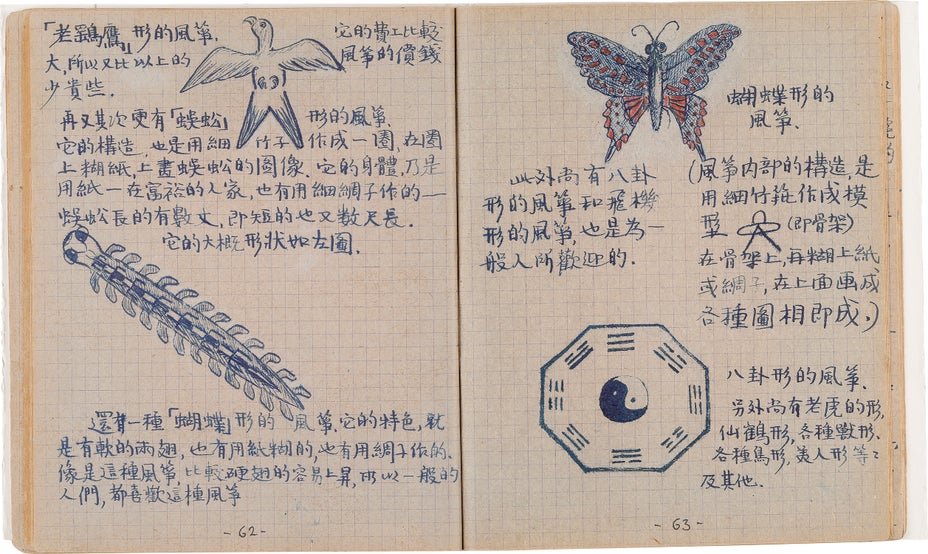 「老鷂鷹」形的風箏.
它的費工比較
大,所以又比以上的
風箏的價錢
少貴些.
再又其次更有「蜈蚣」形的風箏.
它的構造,也是用細竹子作成一圈,在圈
上糊紙,上畫蜈蚣的圖像.它的身體,乃是
用紙—在富裕的人家,也有用細綢子作的—
蜈蚣長的有數丈,即短的也又數尺長.
它的大概形狀如左圖.
還有一種「蝴蝶」形的風箏,它的特色,就
是有軟的兩翅,也有用紙糊的,也有用綢子作的.
像是這種風箏,比較硬翅的容易上昇,所以一般的
人們,都喜歡這種風箏
-62-
蝴蝶形的
風箏.
此外尚有八卦
形的風箏和飛機
形的風箏,也是為一
般人所歡迎的.
(風箏內部的構造,是
用細竹篐作成模
型 (即骨架)
在骨架上,再糊上紙
或綢子,在上面画成
各種圖相即成.)
八卦形的風箏.
另外尚有老虎的形,
仙鶴形,各種獸形.
各種鳥形,美人形等々
及其他.
-63-